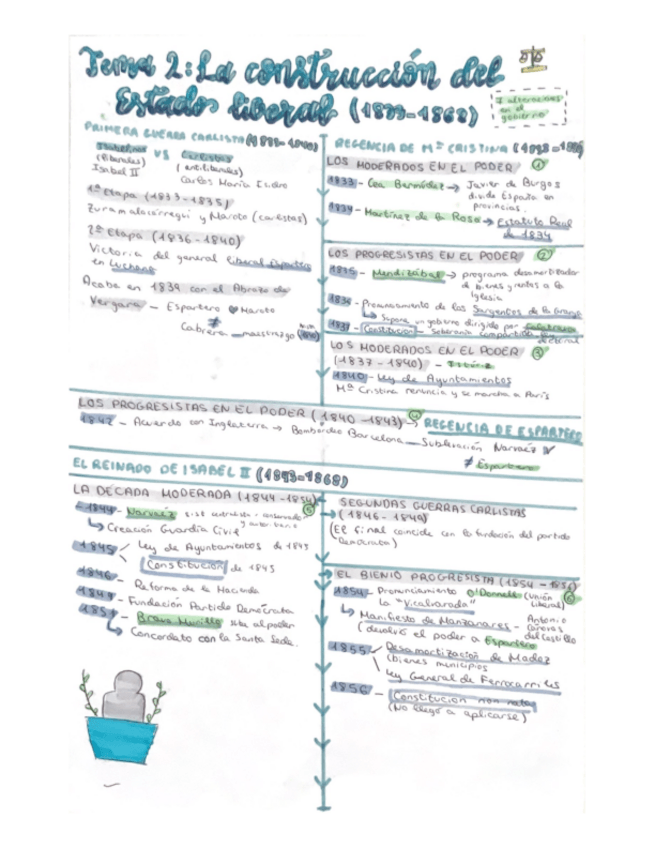 Tema 2: La construcción del
Estado liberal (1833-1868)
7 alteraciones
en el
gobierno
PRIMERA GUERRA CARLISTA (1833-1840)
Isabelinos VS Carlistas
(liberales) (antiliberales)
Isabel II Carlos María Isidro
1ª Etapa (1833-1835)
Zumalacárregui y Maroto (carlistas)
2ª Etapa (1836-1840)
Victoria del general liberal Espartero
en Luchana
Acaba en 1839 con el Abrazo de
Vergara - Espartero ♥ Maroto
≠
Cabrera - maestrazgo (1840)
REGENCIA DE Mª CRISTINA
LOS MODERADOS EN EL PODER 1
1833 - Cea Bermúdez → Javier de Burgos
divide España en
provincias.
1834 - Martínez de la Rosa → Estatuto Real
de 1834
LOS PROGRESISTAS EN EL PODER 2
1835 - Mendizábal → programa desamortizador
de bienes y rentas a la
Iglesia
1836 - Pronunciamiento de los Sargentos de la Granja
↳ Supone un gobierno dirigido por Calatrava
1837 - Constitución - Soberanía compartida
LOS MODERADOS EN EL PODER 3
(1837 - 1840)
1840 - Ley de Ayuntamientos
Mª Cristina renuncia y se marcha a París
LOS PROGRESISTAS EN EL PODER (1840-1843) 4 → REGENCIA DE ESPARTERO
1842 - Acuerdo con Inglaterra → Bombardeo Barcelona - Sublevación Narváez
≠ Espartero
EL REINADO DE ISABEL II (1843-1868)
LA DÉCADA MODERADA (1844-1854) 5
1844 - Narváez
↳ Creación Guardia Civil
1845 Ley de Ayuntamientos de 1845
Constitución de 1845
1846 - Reforma de la Hacienda
1849 - Fundación Partido Demócrata
1851 - Bravo Murillo sube al poder
↳ Concordato con la Santa Sede.
SEGUNDAS GUERRAS CARLISTAS
(1846-1849)
(El final coincide con la fundación del partido
Demócrata)
EL BIENIO PROGRESISTA (1854-1856) 6
1854 - Pronunciamiento O'Donnell (Unión
la "Vicalvarada" Liberal)
↳ Manifiesto de Manzanares - Antonio
Cánovas
(devolvió el poder a Espartero del Castillo
1855 Desamortización de Madoz
(bienes municipios
Ley General de Ferrocarriles
1856 - Constitución non nata
(No llegó a aplicarse)